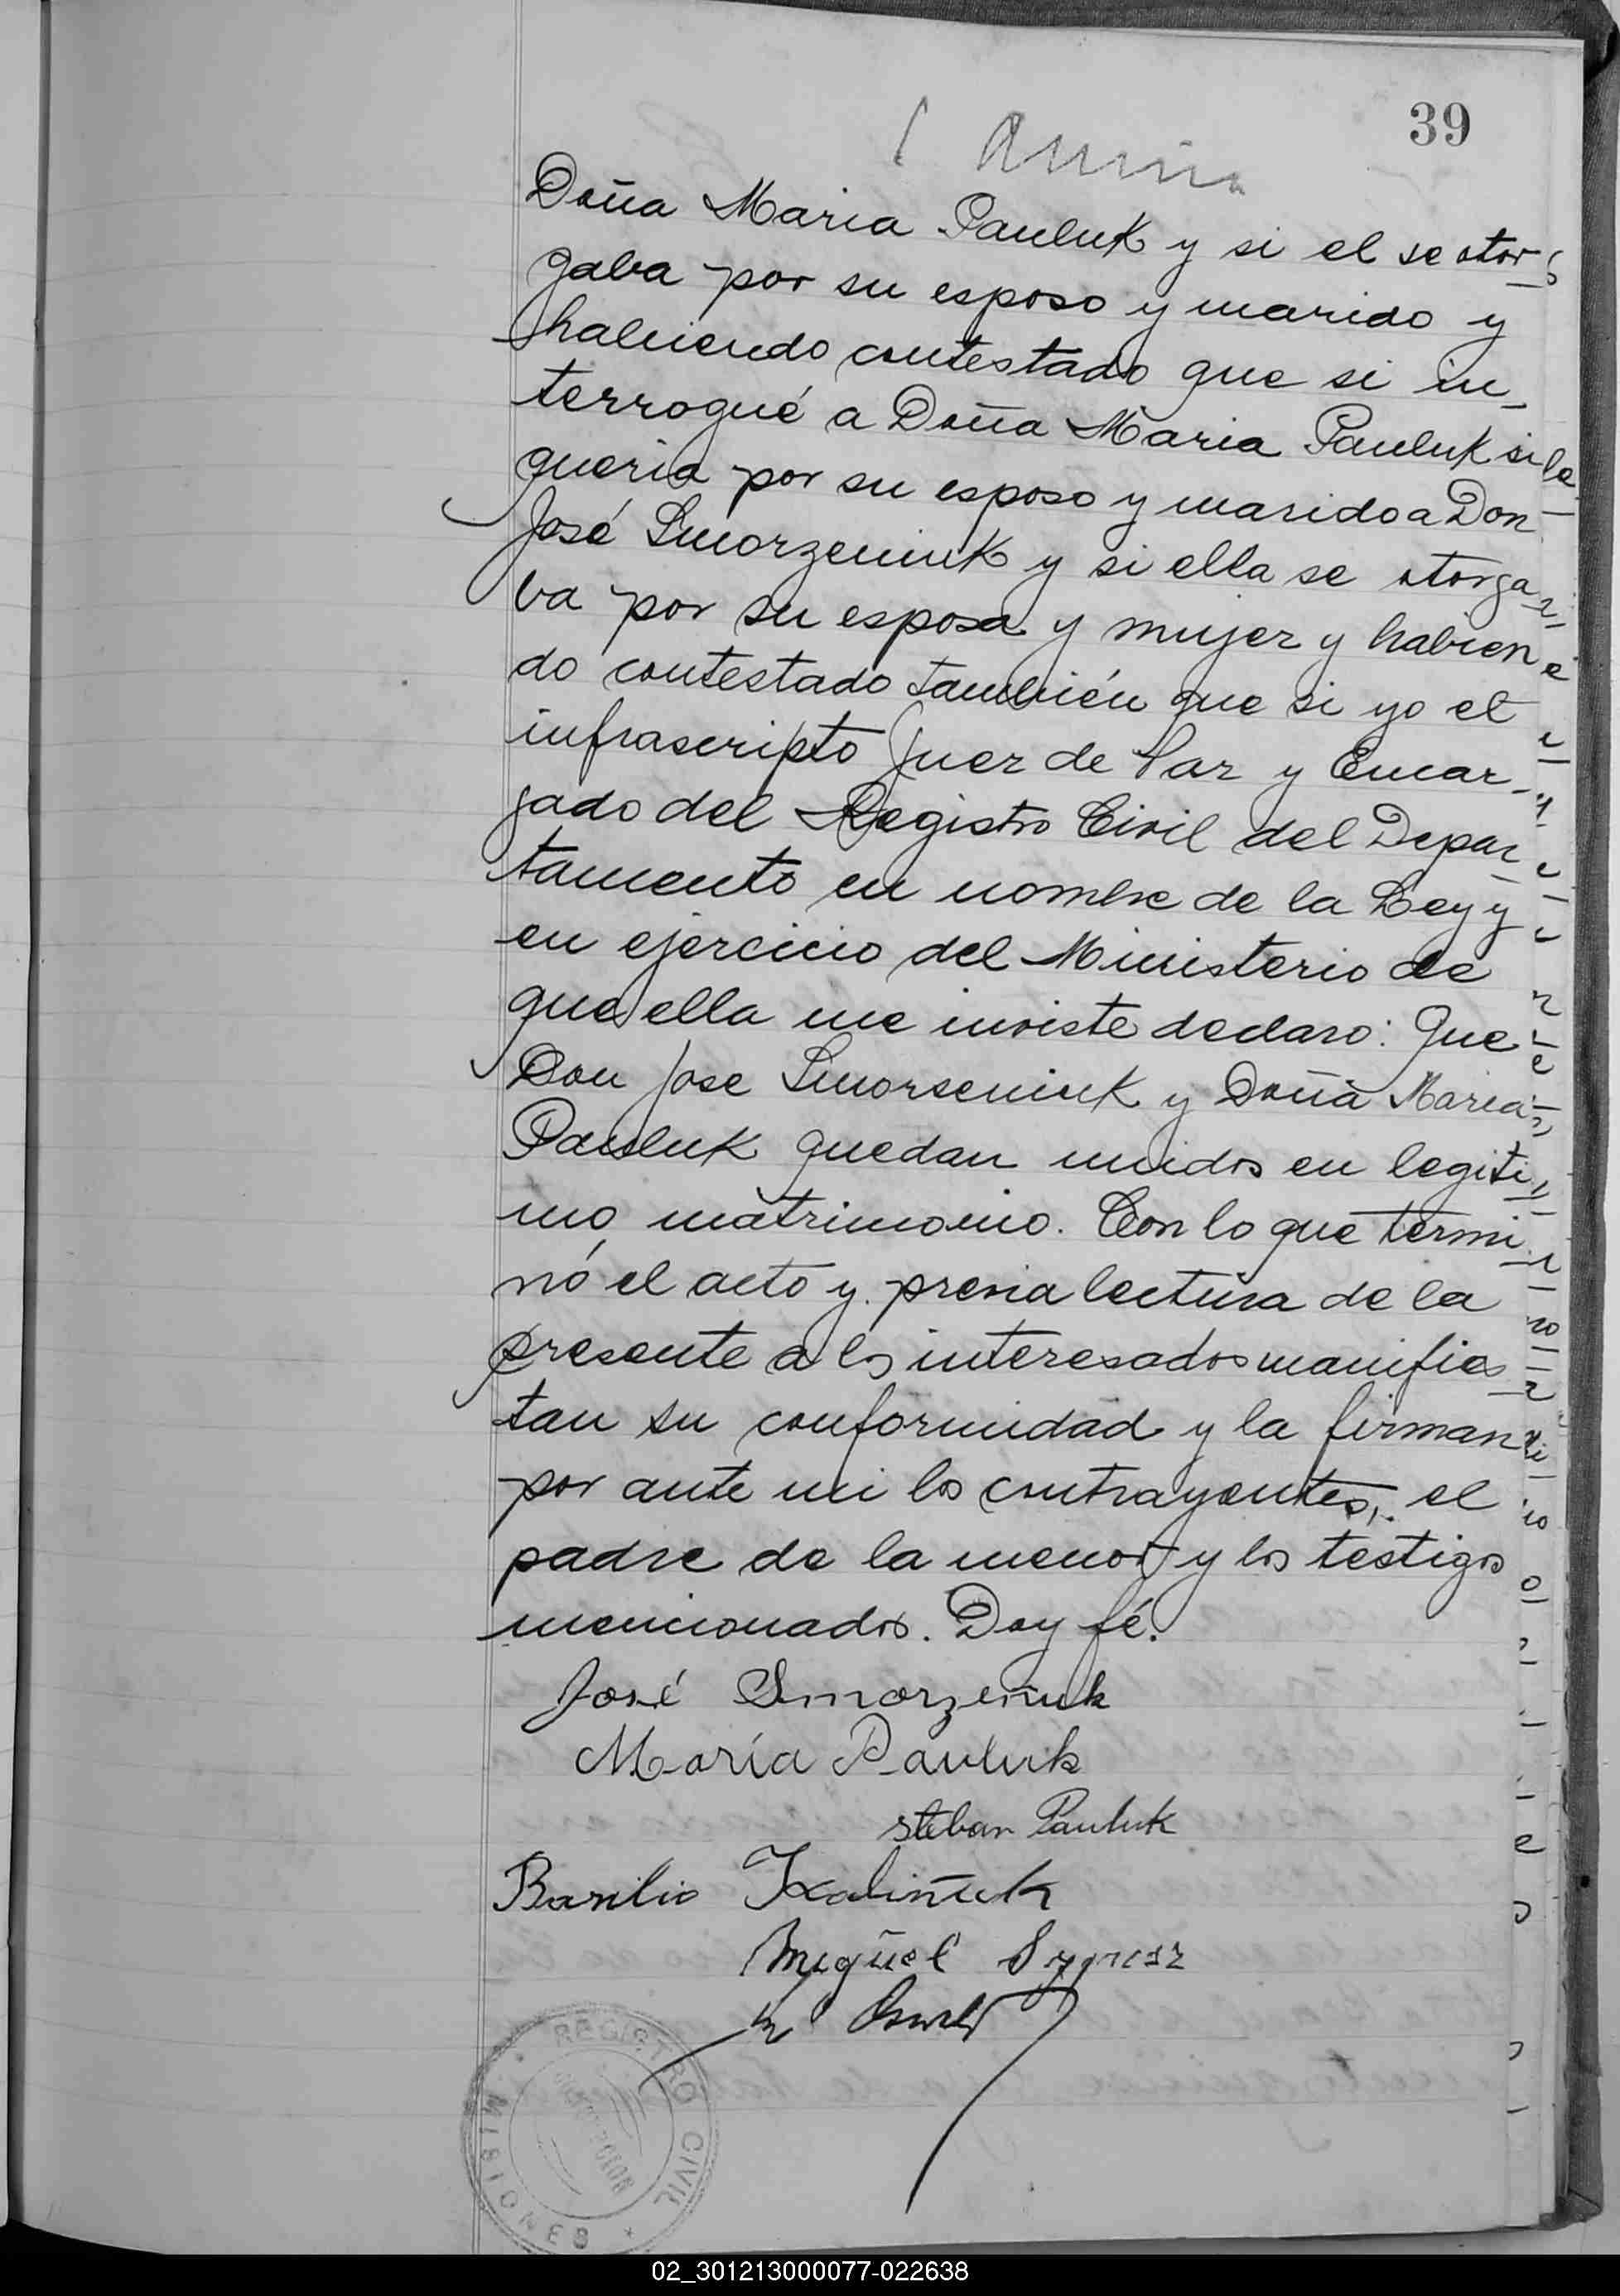 39
Doña Maria Pauluk y si el se otor
gaba por su esposo y marido y
habiendo contestado que si in_
terrogué a Doña Maria Pauluk si lo
queria por su esposo y marido a Don
José Smorzeniuk y si ella se otorga
ba por su esposa y mujer y habien
do contestado también que si yo el
infrascripto Juez de Paz y Encar_
gado del Registro Civil del Depar
tamento en nombre de la Ley y
en ejercicio del Ministerio de
que ella me inviste declaro: Que
Don Jose Smorseniuk y Doña Maria
Pauluk quedan unidos en legiti
mo matrimonio. Con lo que termi
nó el acto y previa lectura de la
presente a los interesados manifies
tan su conformidad y la firman
por ante mi los contrayentes, el
padre de la menor y los testigos
mencionados. Doy fé.
José Smorzeñuk
María Pauluk
steban Pauluk
Basilio Kaliñuk
Miguel
REGISTRO CIVIL
MISIONES
02_301213000077-022638